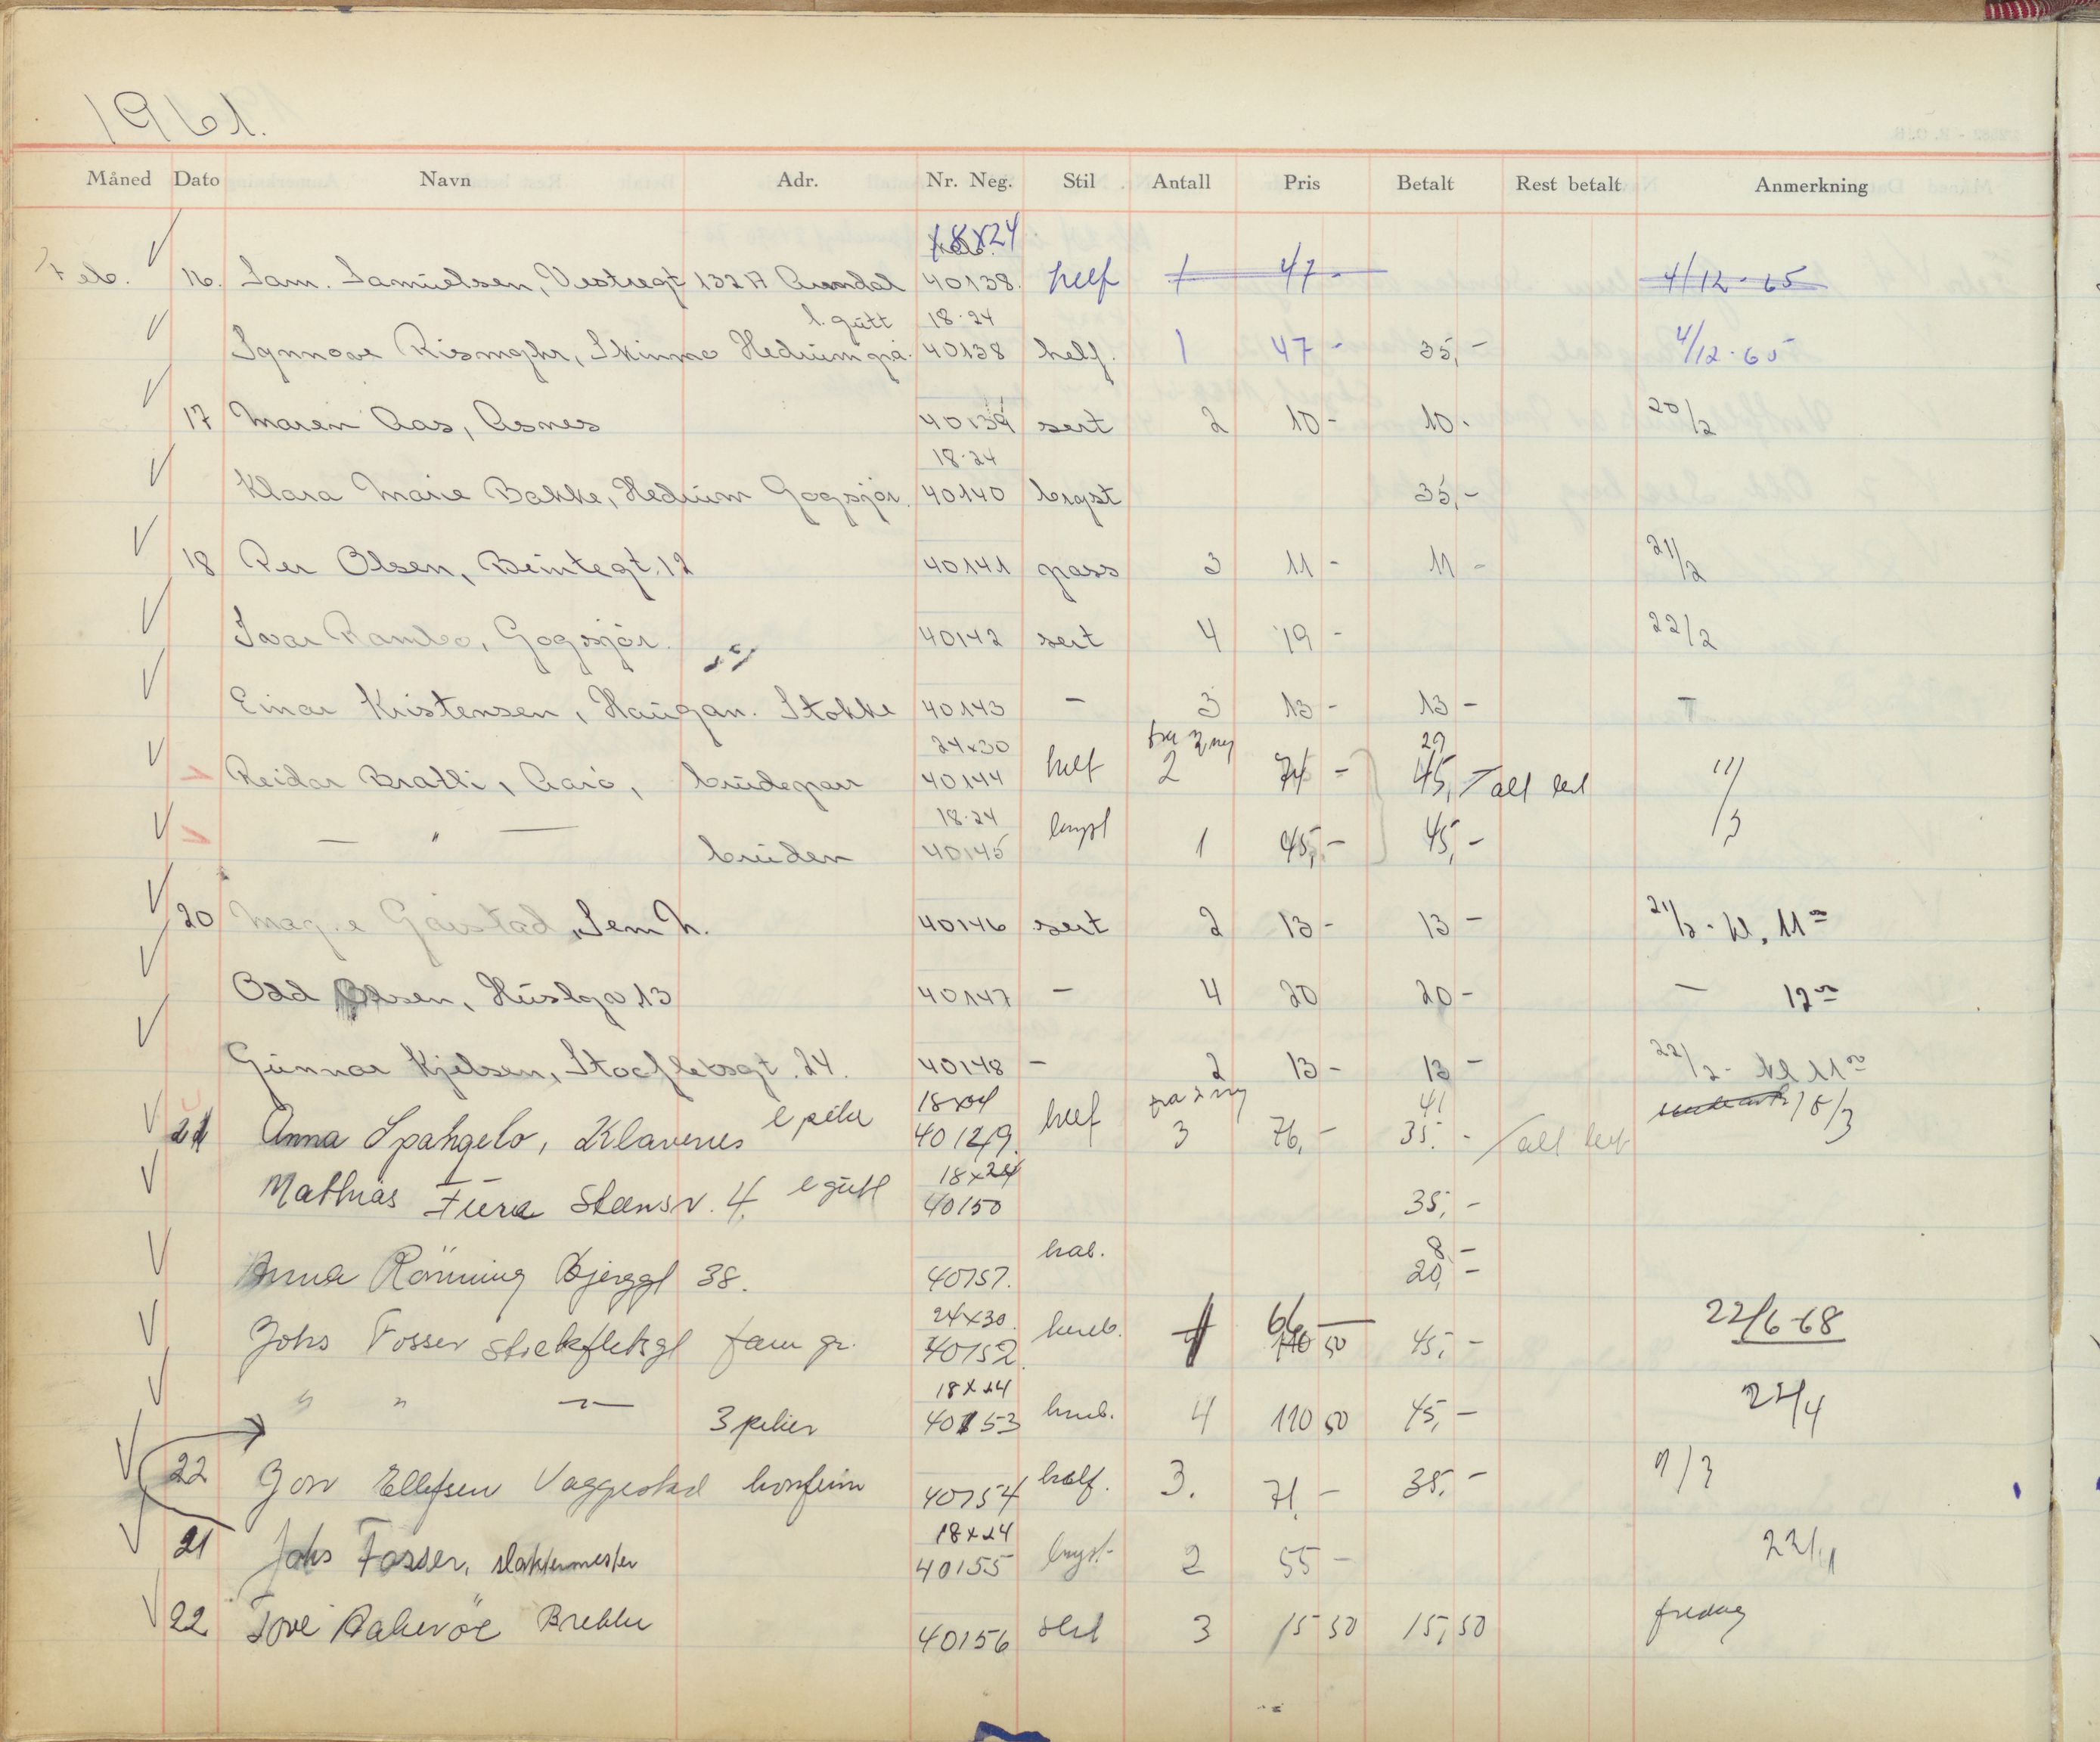 1961.
Måned Dato Navn Adr. Nr. Neg. Stil Antall Pris Betalt Rest betalt Anmerkning
18x24
Feb. 16. Sam. Samuelsen, Vestregt 132 A Arendal 40138. helf 1 47 - 4/12-65
1. gutt 18-24
Synnove, Skinmo Hedrum 40138 helf. 1 47 - 35,- 4/12-65
17 Maren Aas, Asnes 40139 sert 2 10- 10. 20/2
18-24
Klara Marie Bakke, Hedrum Gogsjør. 40140 bryst 35,-
18 Per Olsen, Beintegt. 12 40141 pass 3 11 - 11 - 21/2
Ivar Rambo, Gogsjør. 40142 sert 4 19 - 22/2
Einar Kristensen, Haugan. Stokke 40143 - 3 13 - 13 -
24x30 fra 2 neg 29
Reidar Bratli, Aarö, brudepar 40144 helf 2 74 - 45,- alt lev 11/3
18-24
— " — bruden 40145 bryst 1 45,- 45,-
20 Gaustad, Sem h. 40146 sert 2 13 - 13 - 21/2 - kl. 11
Odd Olsen, Huslya 13 40147 - 4 20 20 - — 12
Gunnar Kjelsen, Stocfletsgt. 24. 40148 - 2 13 - 13 - 22/2 - kl 11
18x24 fra 2 neg 41
21 Anna, Klavenes 40149. helf 3 76,- 35.- alt lev 15/3
18x24
Mathias Fura Stensv. 4, 40150 35,-
kab. 8 -
Anna Rönning Bjerggt 38. 40151. 20,-
24x30. 66 —
Johs Fosser fam gr. 40152. kneb. 1 110 50 45,- 22/6-68
18x24
" " — 3 piker 40153 kneb. 4 110 50 45,- 22/4
22 Jorv Ellefsen Vaggestad konfirm 40154 half. 3. 71,- 35,- 9/3
18x24
21 Johs Fosser, slaktermester 40155 bryst- 2 55 - 22/4
22 Tove 40156 sert 3 15 50 15,50 fredag